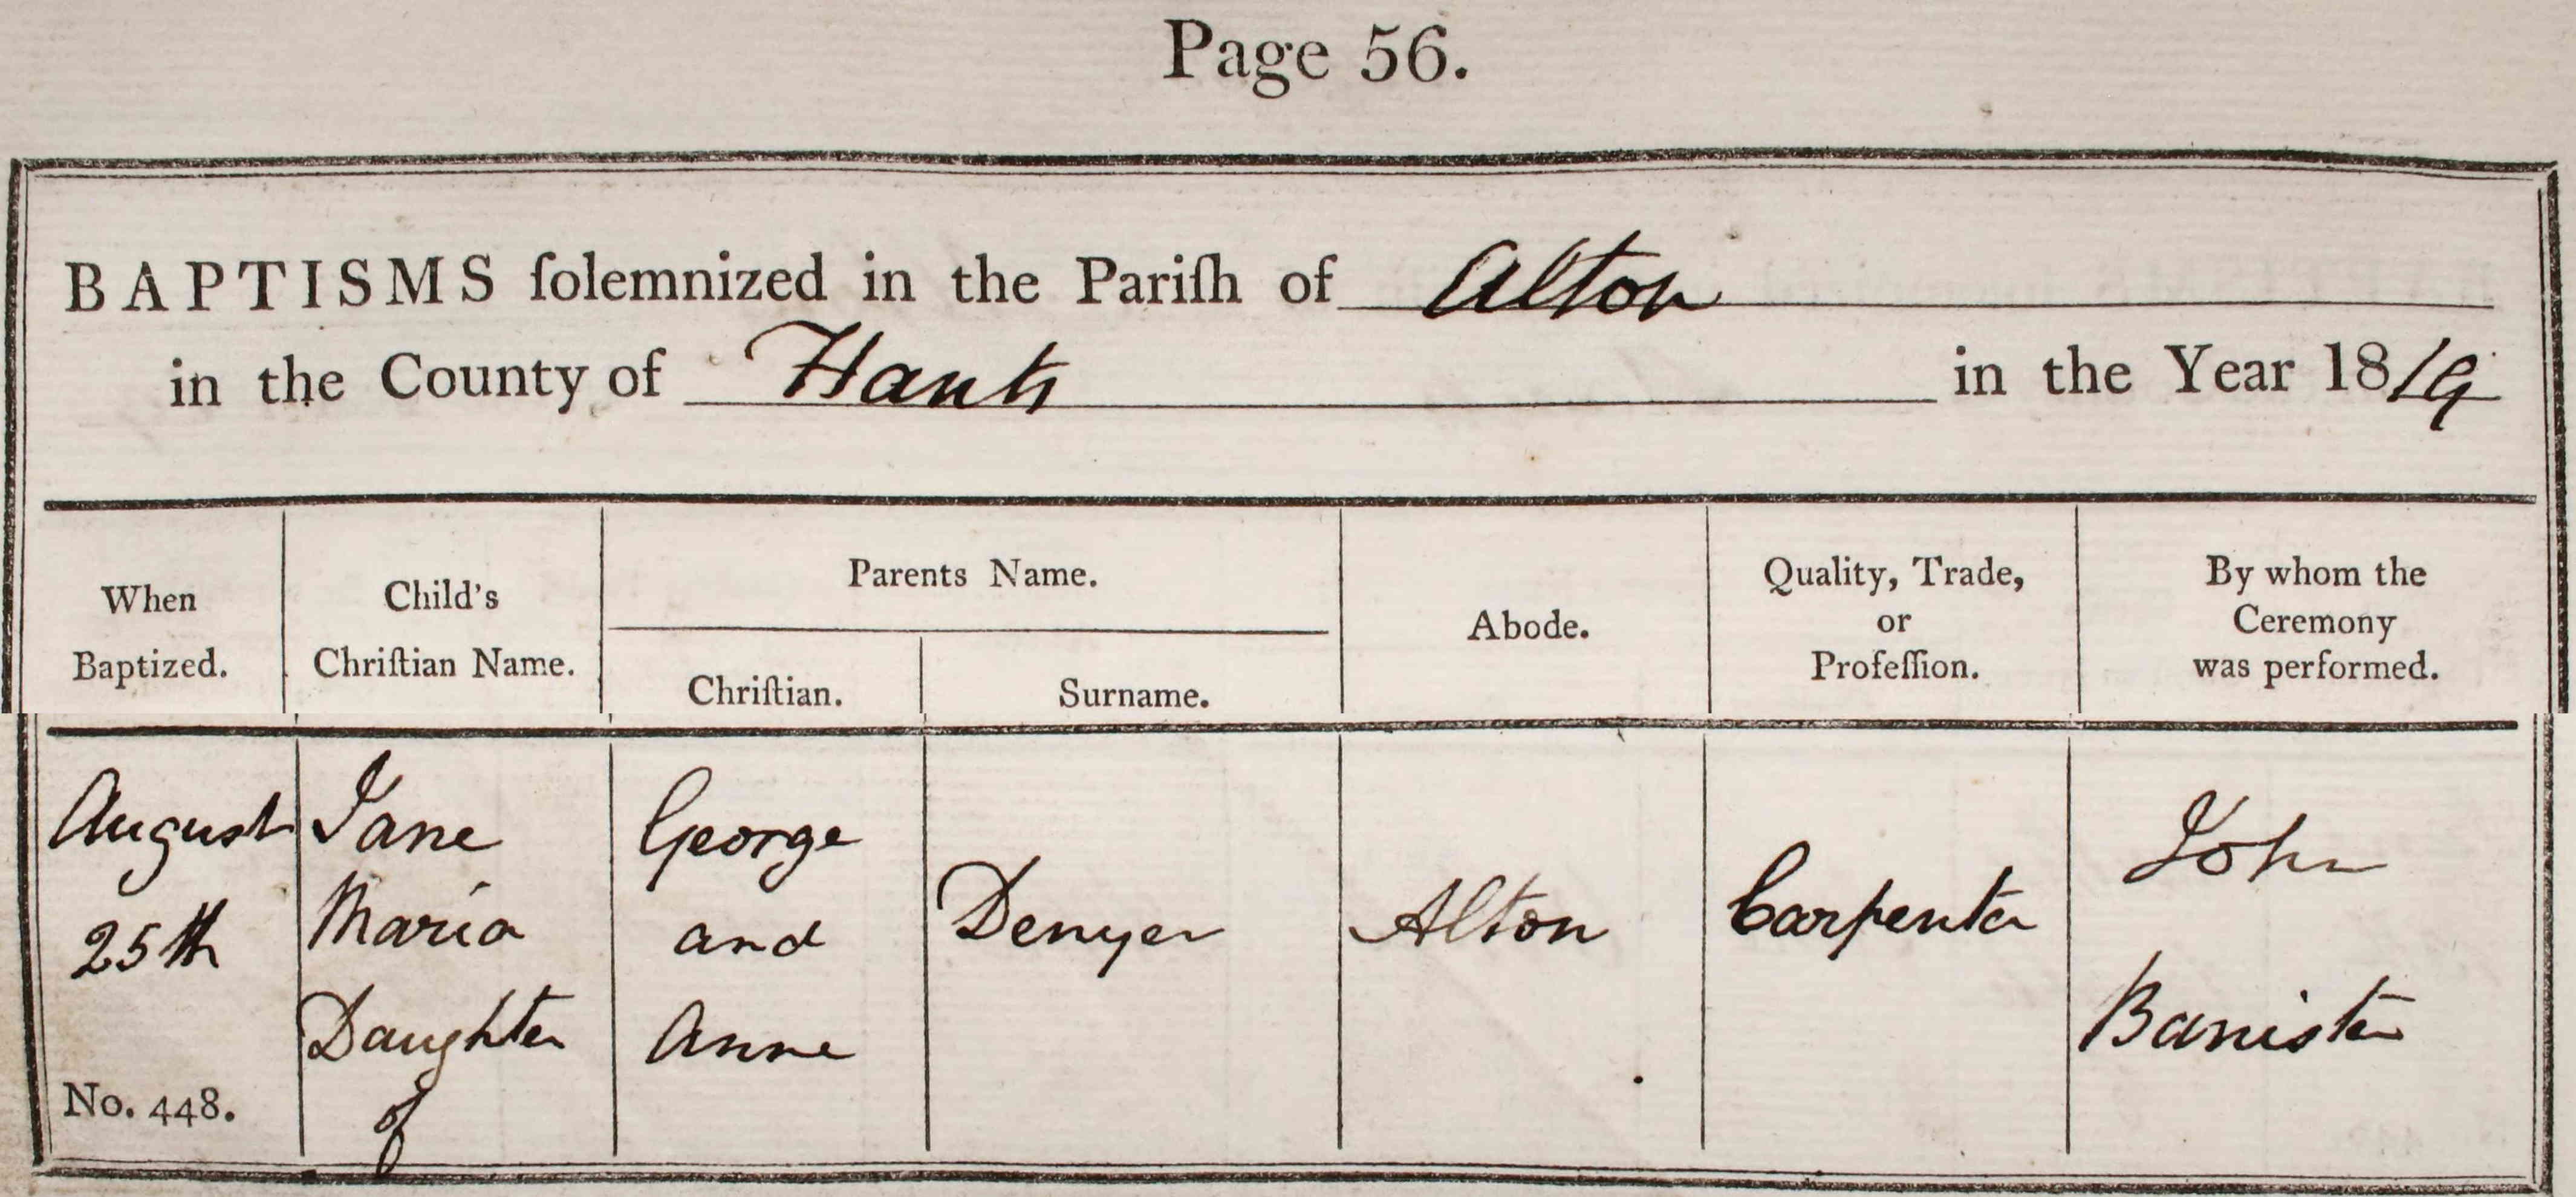 Page 56.
BAPTISMS ſolemnized in the Pariſh of Alton
in the County of Hants in the Year 1819
When
Baptized.
Child's
Chriſtian Name.
Parents Name.
Chriſtian.
Surname.
Abode.
Quality, Trade,
or
Profeſſion.
By whom the
Ceremony
was performed.
August
25th
No. 448.
Jane
Maria
Daughter
of
George
and
Anne
Denyer
Alton
Carpenter
John
Banister